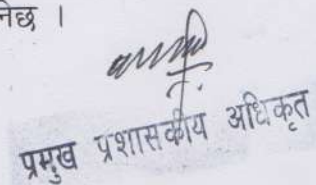 नेछ ।
प्रमुख प्रशासकीय अधिकृत